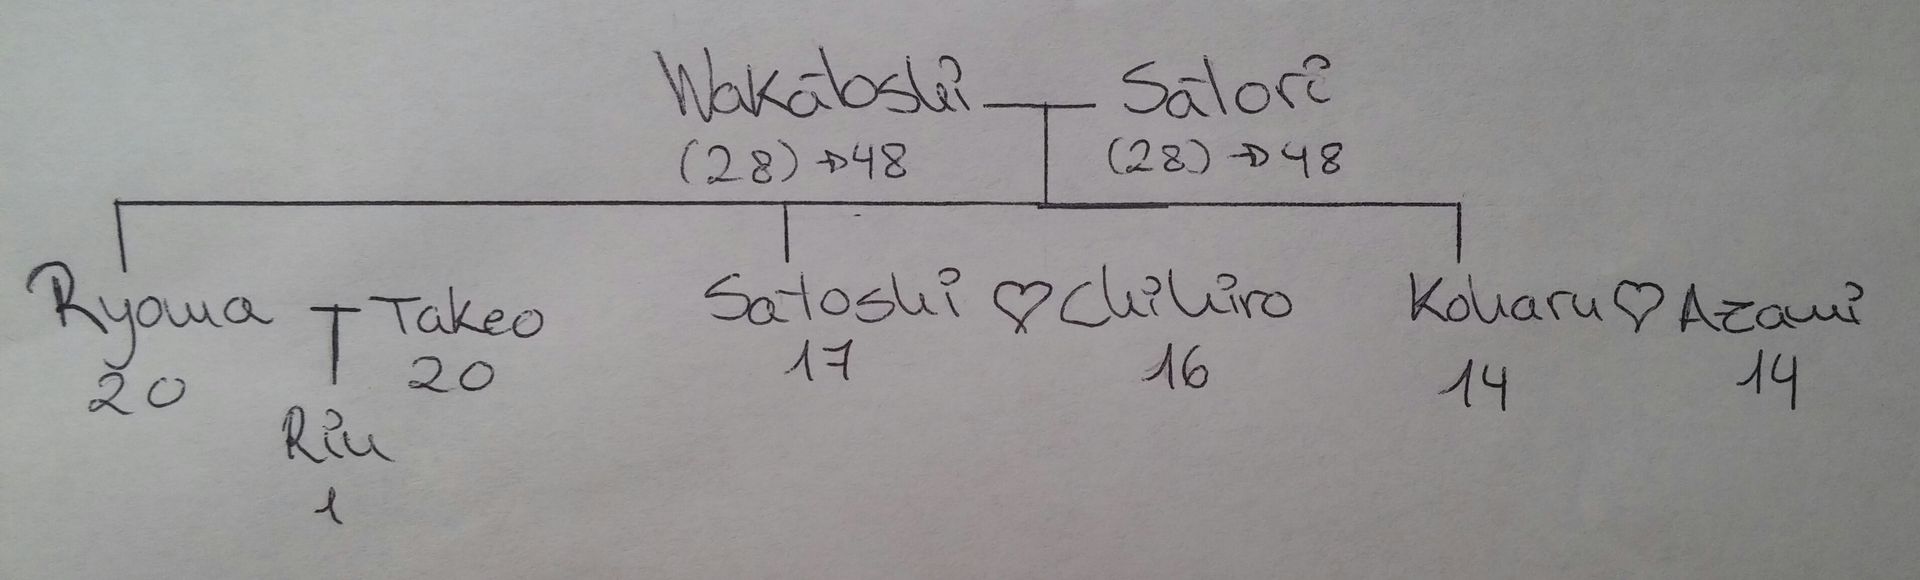 Wakatoshi Satori
(28) → 48 (28) → 48
Ryoma Takeo Satoshi ♡ Chihiro Koharu ♡ Azami
20 20 17 16 14 14
Rin
1